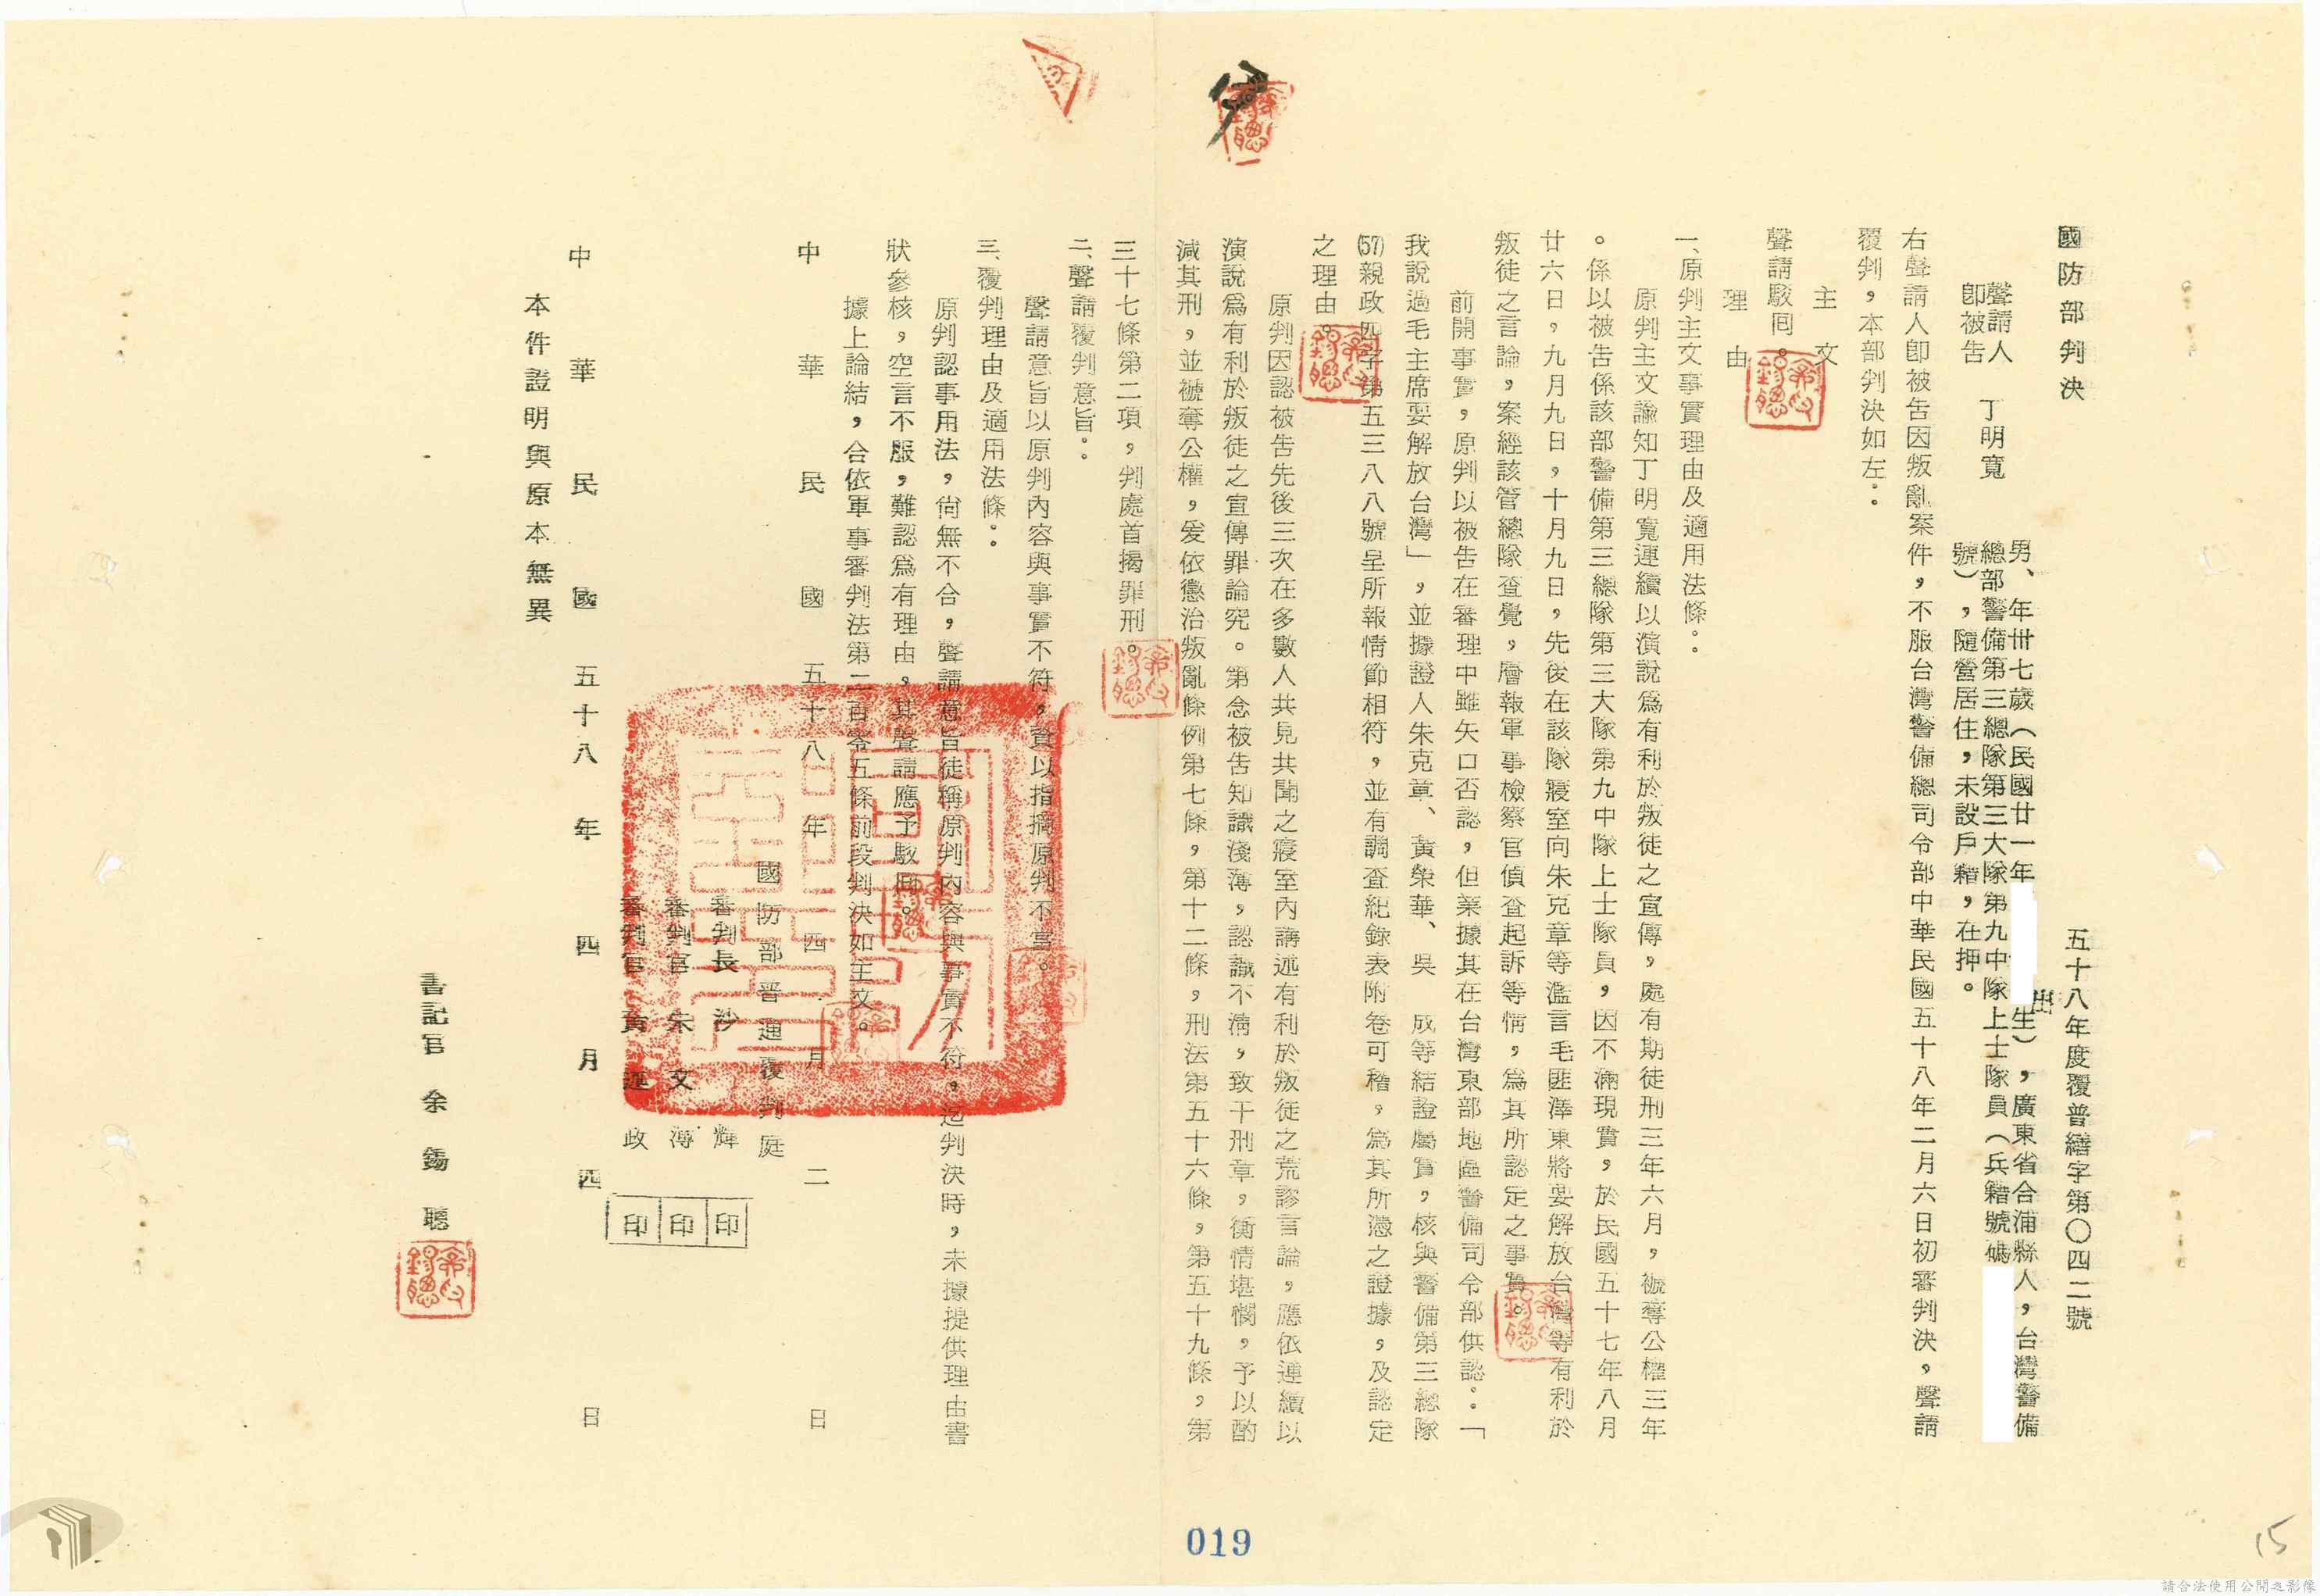 國防部判決
五十八年度覆普繕字第〇四二號
聲請人
即被告
丁明寬
男、年卅七歲（民國廿一年
生），廣東省合浦縣人，台灣警備
總部警備第三總隊第三大隊第九中隊上士隊員（兵籍號碼
號），隨營居住，未設戶籍，在押。
右聲請人卽被告因叛亂案件，不服台灣警備總司令部中華民國五十八年二月六日初審判決，聲請
覆判，本部判決如左：
主文
聲請駁回。
理由
一、原判主文事實理由及適用法條：
原判主文諭知丁明寬連續以演說爲有利於叛徒之宣傳，處有期徒刑三年六月，褫奪公權三年
。係以被告係該部警備第三總隊第三大隊第九中隊上士隊員，因不滿現實，於民國五十七年八月
廿六日，九月九日，十月九日，先後在該隊寢室向朱克章等濫言毛匪澤東將要解放台灣等有利於
叛徒之言論，案經該管總隊查覺，層報軍事檢察官偵查起訴等情，爲其所認定之事實。
前開事實，原判以被告在審理中雖矢口否認，但業據其在台灣東部地區警備司令部供認：「
我說過毛主席要解放台灣」，並據證人朱克章、黃榮華、吳　成等結證屬實，核與警備第三總隊
(57)親政四字第五三八八號呈所報情節相符，並有調查紀錄表附卷可稽，爲其所憑之證據，及認定
之理由。
原判因認被告先後三次在多數人共見共聞之寢室內講述有利於叛徒之荒謬言論，應依連續以
演說爲有利於叛徒之宣傳罪論究。第念被告知識淺薄，認識不清，致干刑章，衡情堪憫，予以酌
減其刑，並褫奪公權，爰依懲治叛亂條例第七條，第十二條，刑法第五十六條，第五十九條，第
三十七條第二項，判處首揭罪刑。
二、聲請覆判意旨：
聲請意旨以原判內容與事實不符，資以指摘原判不當。
三、覆判理由及適用法條：
原判認事用法，尙無不合，聲請意旨徒稱原判內容與事實不符，迄判決時，未據提供理由書
狀參核，空言不服，難認爲有理由，其聲請應予駁回。
據上論結，合依軍事審判法第二百零五條前段判決如主文。
中華民國五十八年四月二日
國防部普通覆判庭
審判長　沙　輝　印
審判官　宋文溥　印
審判官　黃　政　印
本件證明與原本無異
中華民國五十八年四月四日
書記官　余錫聰
019
15
請合法使用公開之影像